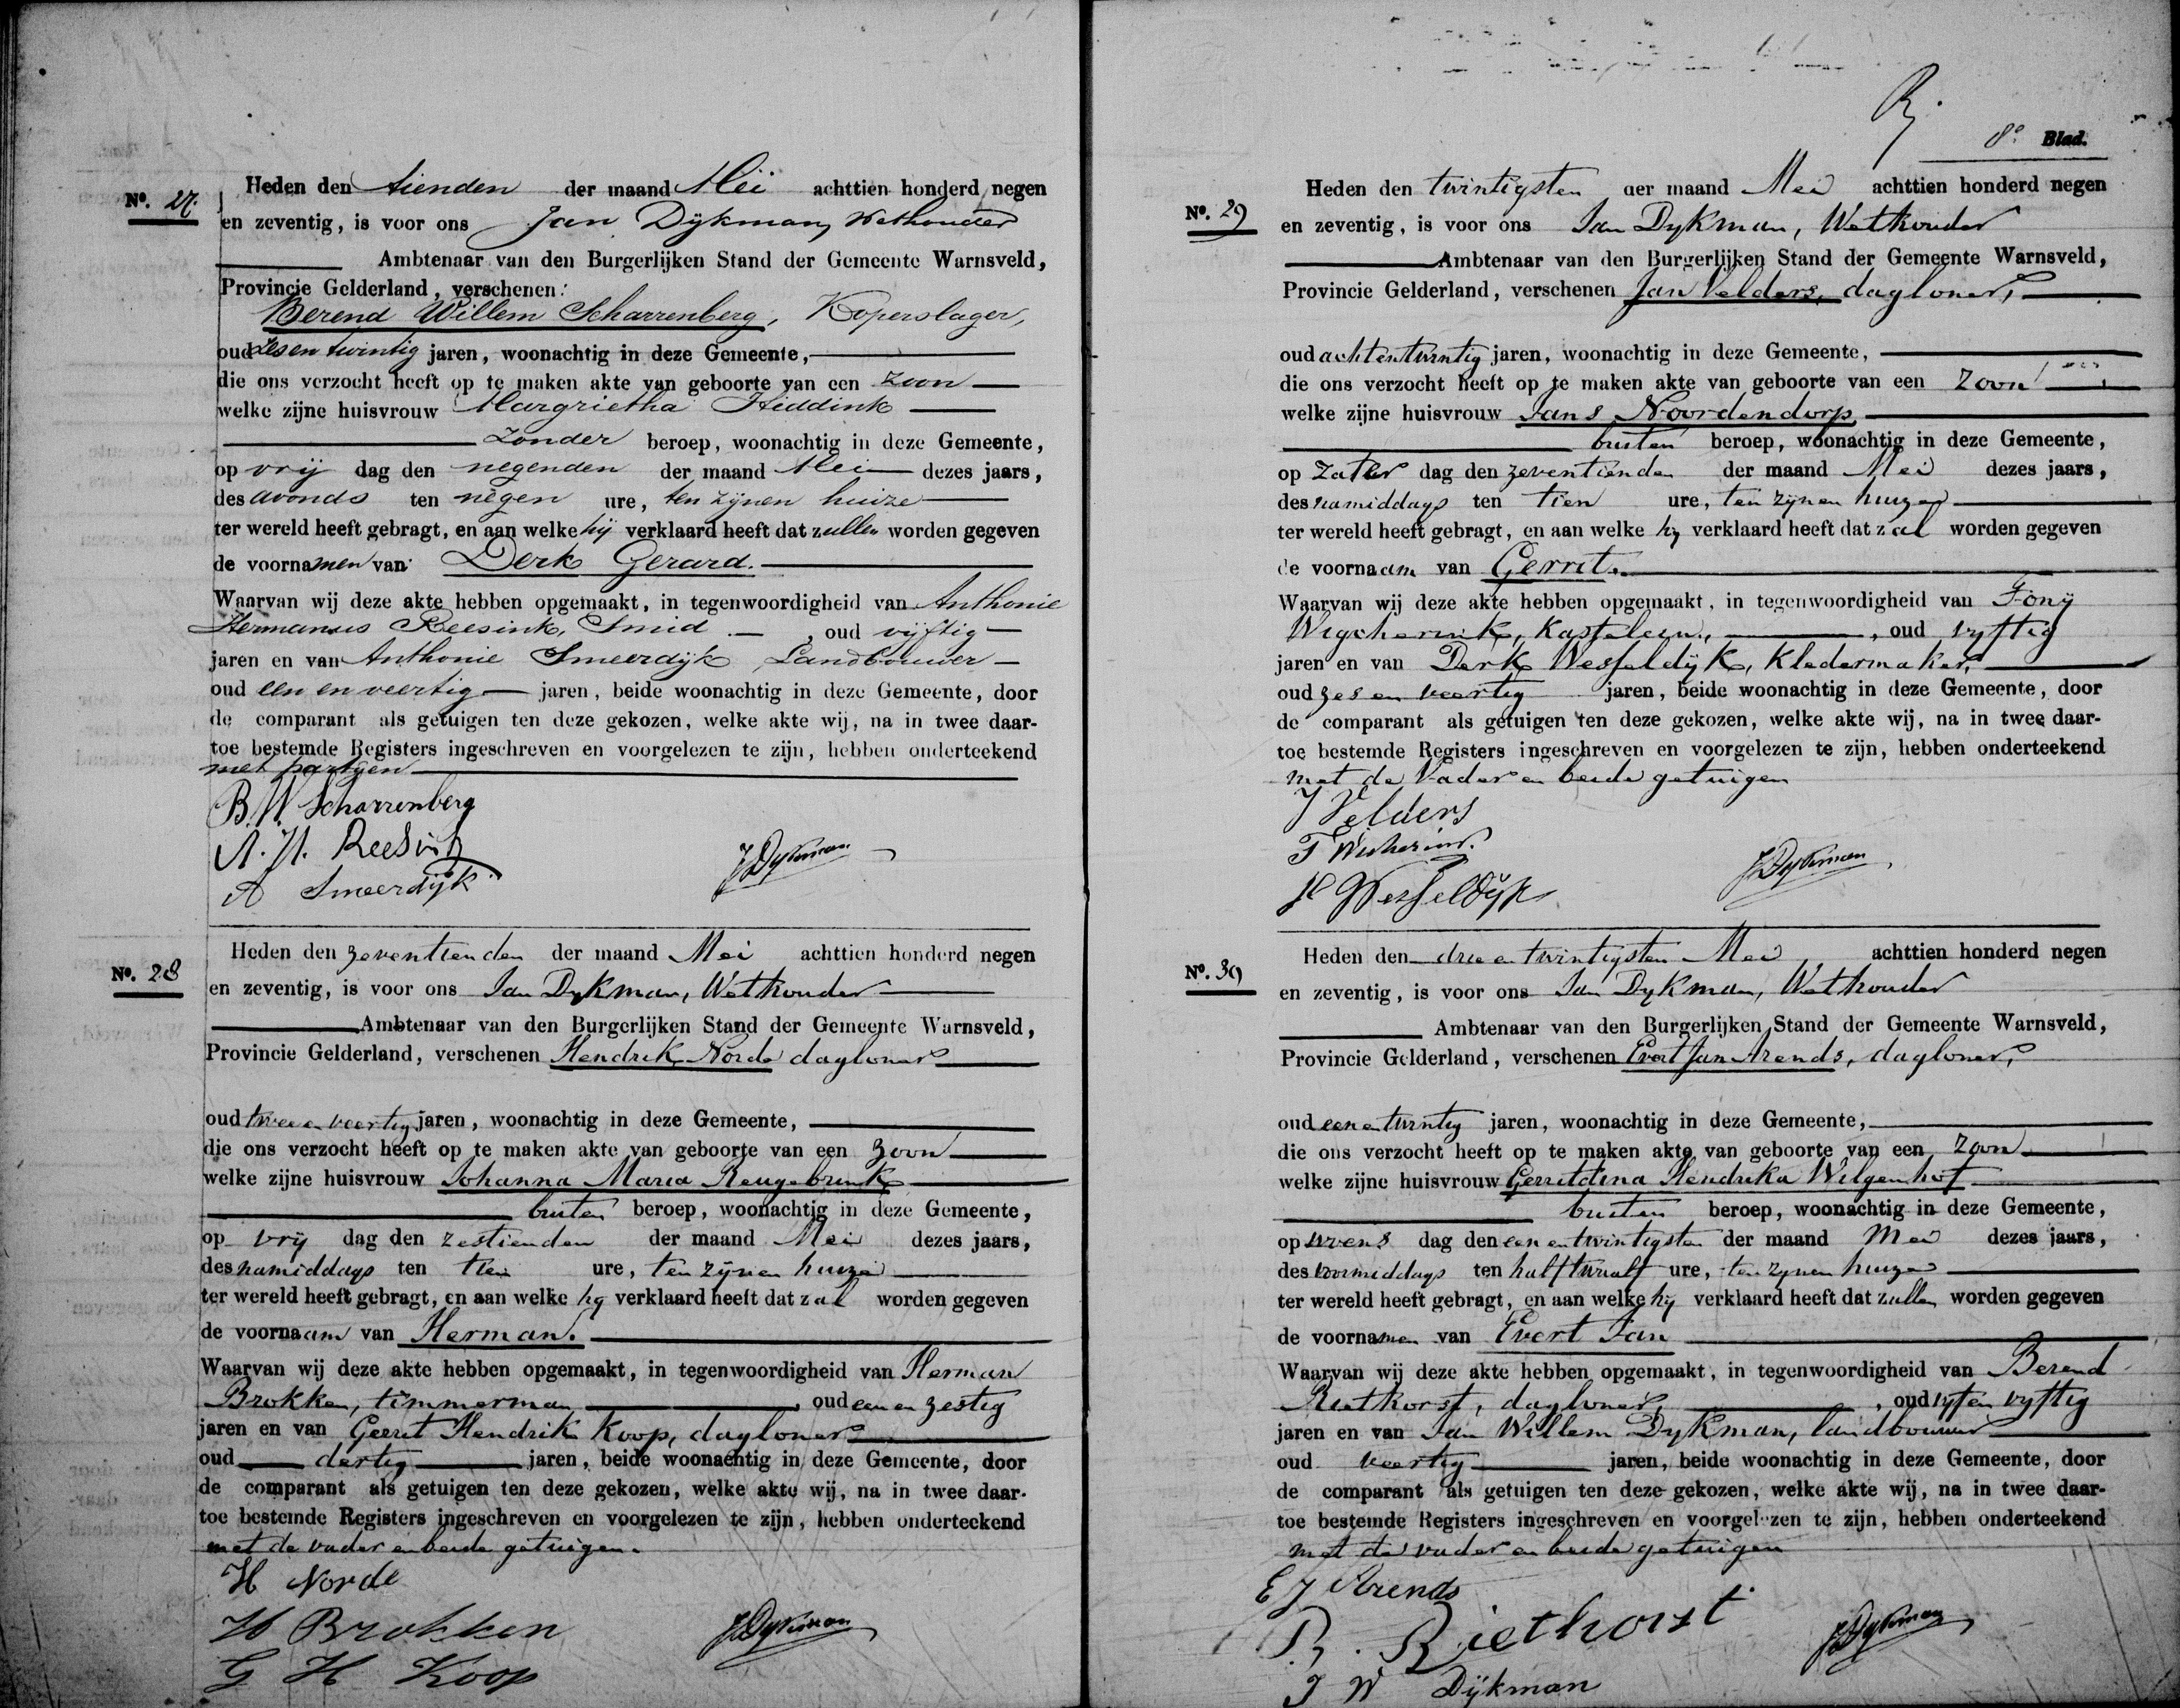 No. 27.
Heden den tienden der maand Mei achttien honderd negen
en zeventig, is voor ons Jan Dijkman, Wethouder
Ambtenaar van den Burgerlijken Stand der Gemeente Warnsveld,
Provincie Gelderland, verschenen:
Berend Willem Scharrenberg, Koperslager,
oud zesentwintig jaren, woonachtig in deze Gemeente,
die ons verzocht heeft op te maken akte van geboorte van een zoon
welke zijne huisvrouw Margrietha Hiddink
zonder beroep, woonachtig in deze Gemeente,
op vrij dag den negenden der maand Mei dezes jaars,
des avonds ten negen ure, ten zijnen huize
ter wereld heeft gebragt, en aan welke hij verklaard heeft dat zullen worden gegeven
de voornamen van Derk Gerard.
Waarvan wij deze akte hebben opgemaakt, in tegenwoordigheid van Anthonie
Hermanus Reesink, Smid, oud vijftig
jaren en van Anthonie Smeerdijk, Landbouwer
oud een en veertig jaren, beide woonachtig in deze Gemeente, door
de comparant als getuigen ten deze gekozen, welke akte wij, na in twee daar-
toe bestemde Registers ingeschreven en voorgelezen te zijn, hebben onderteekend
met partijen
B. W Scharrenberg
A. H. Reesink
JDijkman
A Smeerdijk
No. 28
Heden den zeventienden der maand Mei achttien honderd negen
en zeventig, is voor ons Jan Dykman, Wethouder
Ambtenaar van den Burgerlijken Stand der Gemeente Warnsveld,
Provincie Gelderland, verschenen Hendrik Norde dagloner
oud twee en veertig jaren, woonachtig in deze Gemeente,
die ons verzocht heeft op te maken akte van geboorte van een zoon
welke zijne huisvrouw Johanna Maria Reugebrink
buiten beroep, woonachtig in deze Gemeente,
op vrij dag den zestienden der maand Mei dezes jaars,
des namiddags ten tien ure, ten zijnen huize
ter wereld heeft gebragt, en aan welke hij verklaard heeft dat zal worden gegeven
de voornaam van Herman.
Waarvan wij deze akte hebben opgemaakt, in tegenwoordigheid van Herman
Brokken, timmerman, oud een en zestig
jaren en van Gerrit Hendrik Koop, dagloner
oud dertig jaren, beide woonachtig in deze Gemeente, door
de comparant als getuigen ten deze gekozen, welke akte wij, na in twee daar-
toe bestemde Registers ingeschreven en voorgelezen te zijn, hebben onderteekend
met de vader en beide getuigen.
H Norde
H Brokken
JDijkman
G H Koop
8e Blad.
No. 29
Heden den twintigsten der maand Mei achttien honderd negen
en zeventig, is voor ons Jan Dykman, Wethouder
Ambtenaar van den Burgerlijken Stand der Gemeente Warnsveld,
Provincie Gelderland, verschenen Jan Velders, dagloner,
oud achtentwintig jaren, woonachtig in deze Gemeente,
die ons verzocht heeft op te maken akte van geboorte van een zoon
welke zijne huisvrouw Jans Noordendorp
buiten beroep, woonachtig in deze Gemeente,
op Zater dag den zeventienden der maand Mei dezes jaars,
des namiddags ten tien ure, ten zijnen huize
ter wereld heeft gebragt, en aan welke hij verklaard heeft dat zal worden gegeven
de voornaam van Gerrit.
Waarvan wij deze akte hebben opgemaakt, in tegenwoordigheid van Fonij
Wigcherink, Kastelein, oud vyftig
jaren en van Derk Wesseldijk, Kledermaker,
oud zes en veertig jaren, beide woonachtig in deze Gemeente, door
de comparant als getuigen ten deze gekozen, welke akte wij, na in twee daar-
toe bestemde Registers ingeschreven en voorgelezen te zijn, hebben onderteekend
met de Vader en beide getuigen
J Velders
JDijkman
Wesseldijk
No. 30
Heden den drie en twintigsten Mei achttien honderd negen
en zeventig, is voor ons Jan Dykman, Wethouder
Ambtenaar van den Burgerlijken Stand der Gemeente Warnsveld,
Provincie Gelderland, verschenen Evert Jan Arends, dagloner,
oud een en twintig jaren, woonachtig in deze Gemeente,
die ons verzocht heeft op te maken akte van geboorte van een zoon
welke zijne huisvrouw Gerritdina Hendrika Wilgenhof
buiten beroep, woonachtig in deze Gemeente,
op woens dag den een en twintigsten der maand Mei dezes jaars,
des voormiddags ten half twaalf ure, ten zynen huize
ter wereld heeft gebragt, en aan welke hij verklaard heeft dat zullen worden gegeven
de voornamen van Evert Jan
Waarvan wij deze akte hebben opgemaakt, in tegenwoordigheid van Berend
Riethorst, dagloner, oud vyf en vyftig
jaren en van Jan Willem Dykman, landbouwer
oud veertig jaren, beide woonachtig in deze Gemeente, door
de comparant als getuigen ten deze gekozen, welke akte wij, na in twee daar-
toe bestemde Registers ingeschreven en voorgelezen te zijn, hebben onderteekend
met de vader en beide getuigen
E J Arends
B. Riethorst
JDijkman
J W Dijkman